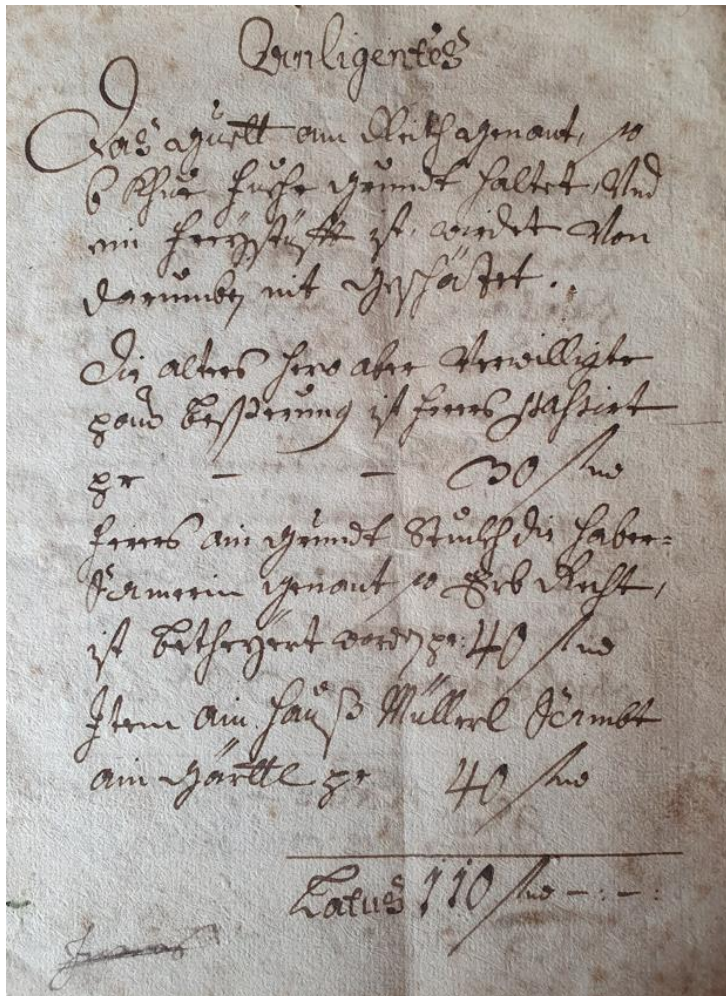 Anligentes
Das Guett am Reith genant, so
6 Khüe Fuehr grundt haltet, Und
ein Freystüfft ist, wirdet Von
darumben nit geschäzet.
Die alters hero aber Verwilligte
pau Beßerung ist ferers passirt
pr — — 30 f
ferers ain grundt Stuckh die Haber-
genant so Erb Recht,
ist betheyert worden pr: 40 f
Item ain Hauß Müllerl sambt
ain Gärttl pr 40 f
Latus 110 f —:—: